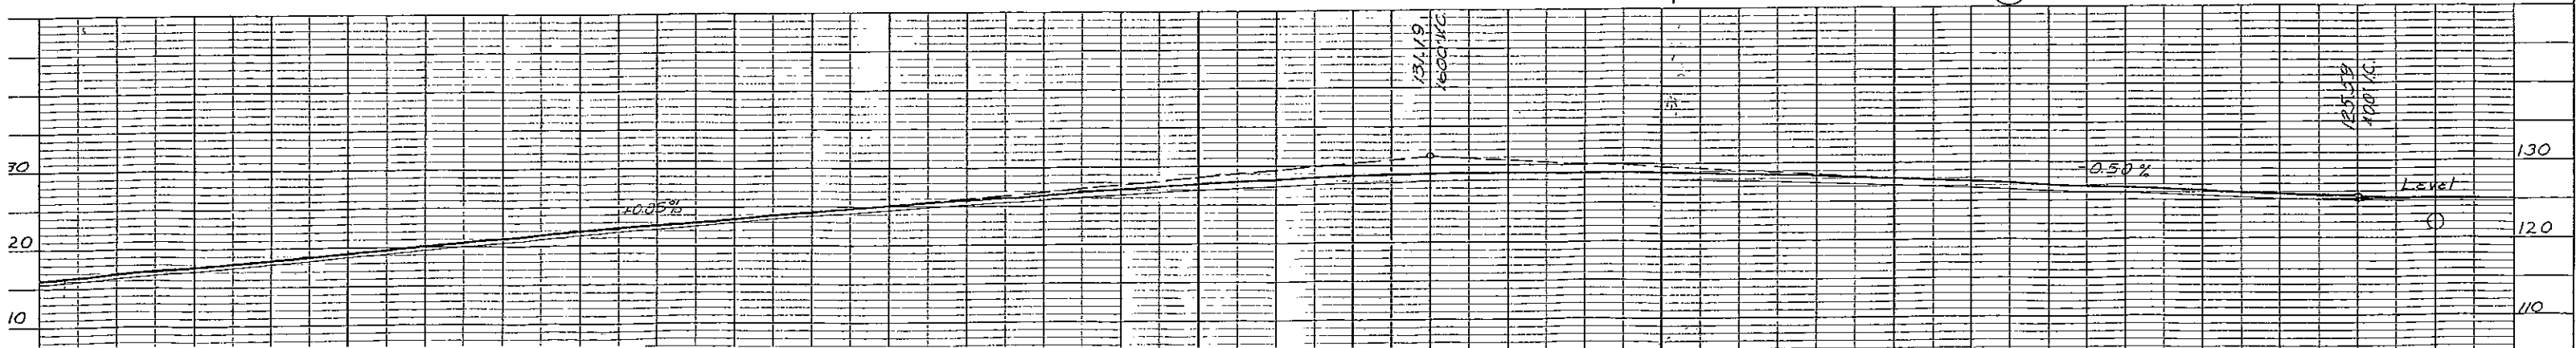 131.19
1600' V.C.
125.59
100' V.C.
30
130
+0.85%
-0.50%
Level
20
120
10
110